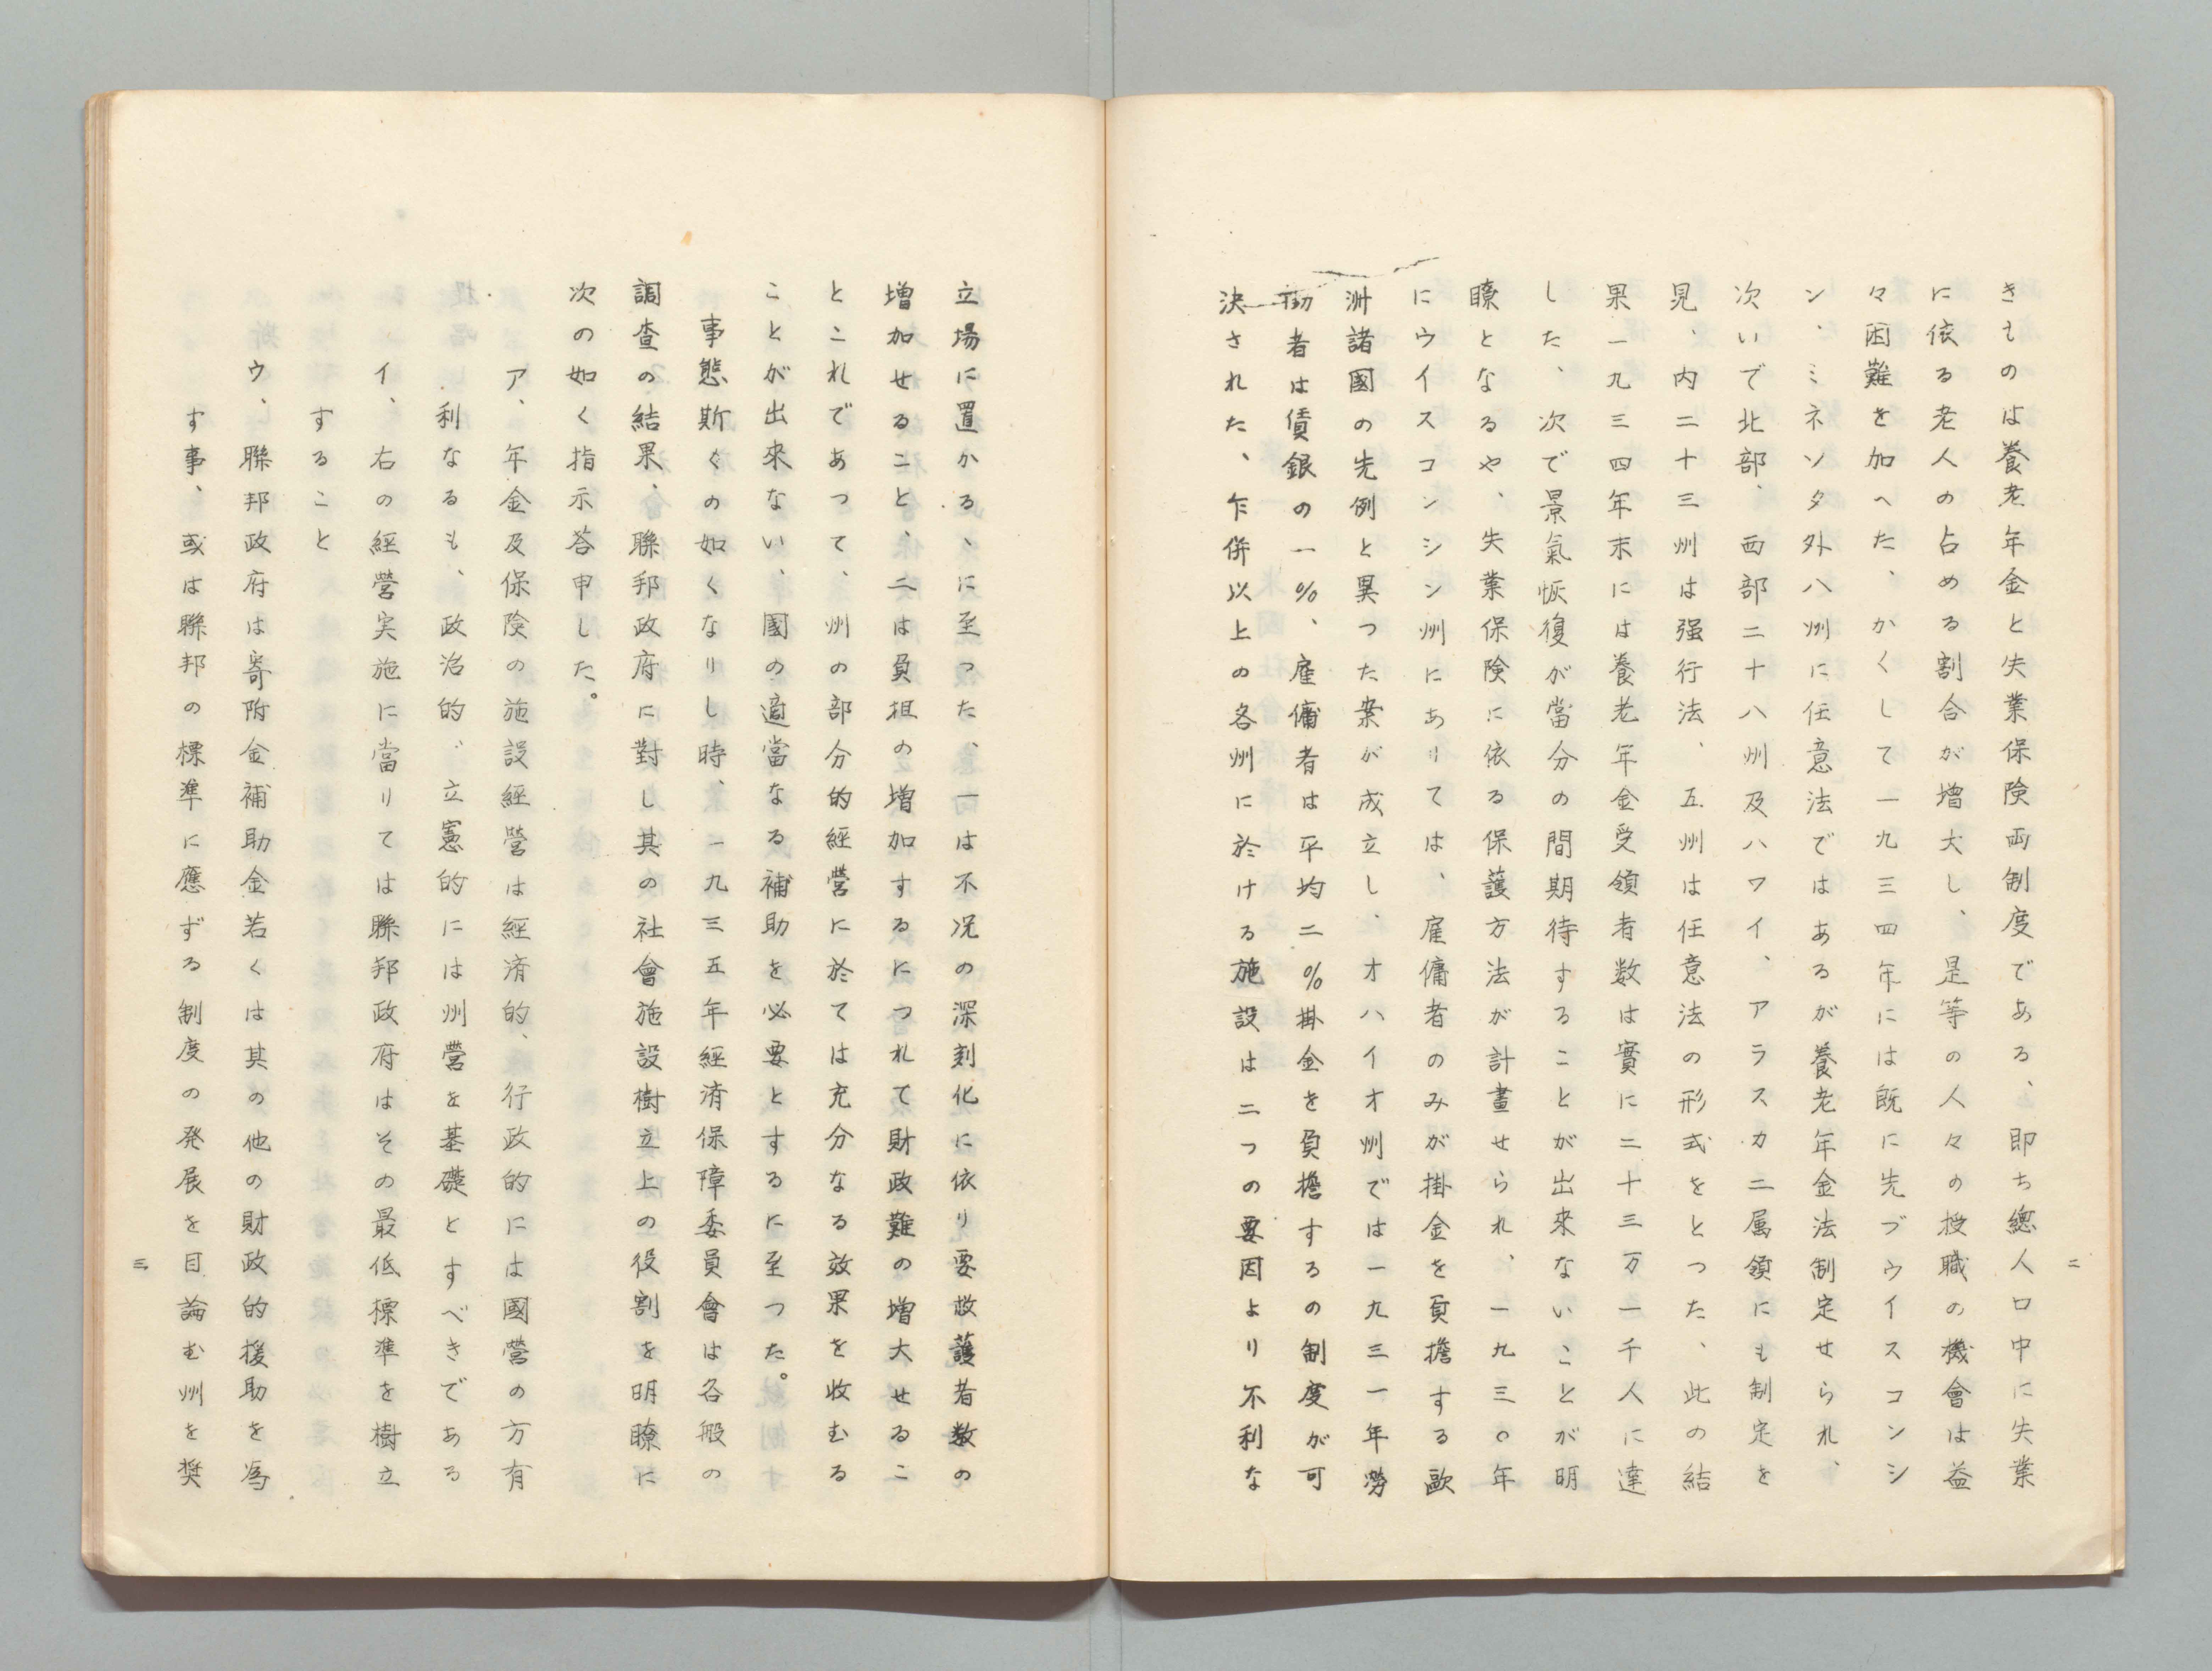 きものは養老年金と失業保険両制度である、即ち總人口中に失業
に依る老人の占める割合が増大し、是等の人々の授職の機會は益
々困難を加へた、かくして一九三四年には既に先づウイスコンシ
ン、ミネソタ外八州に任意法ではあるが養老年金法制定せられ、
次いで北部、西部二十八州及ハワイ、アラスカ二属領にも制定を
見、内二十三州は强行法、五州は任意法の形式をとつた、此の結
果一九三四年末には養老年金受領者数は實に二十三万一千人に達
した、次で景氣恢復が當分の間期待することが出來ないことが明
瞭となるや、失業保険に依る保護方法が計畫せられ、一九三〇年
にウイスコンシン州にありては、雇傭者のみが掛金を負擔する歐
洲諸國の先例と異つた案が成立し、オハイオ州では一九三一年勞
働者は賃銀の一%、雇傭者は平均二%掛金を負擔するの制度が可
決された、乍併以上の各州に於ける施設は二つの要因より不利な
二
立場に置かるゝに至つた、一は不況の深刻化に依り要救護者数の
増加せること、二は負担の増加するにつれて財政難の増大せるこ
とこれであつて、州の部分的經營に於ては充分なる効果を收むる
ことが出來ない、國の適當なる補助を必要とするに至つた。
事態斯くの如くなりし時、一九三五年經済保障委員會は各般の
調査の結果、聯邦政府に對し其の社會施設樹立上の役割を明瞭に
次の如く指示答申した。
ア、年金及保険の施設經營は經済的、行政的には國營の方有
利なるも、政治的、立憲的には州營を基礎とすべきである
イ、右の經營実施に當りては聯邦政府はその最低標準を樹立
すること
ウ、聯邦政府は寄附金補助金若くは其の他の財政的援助を為
す事、或は聯邦の標準に應ずる制度の発展を目論む州を奨
三